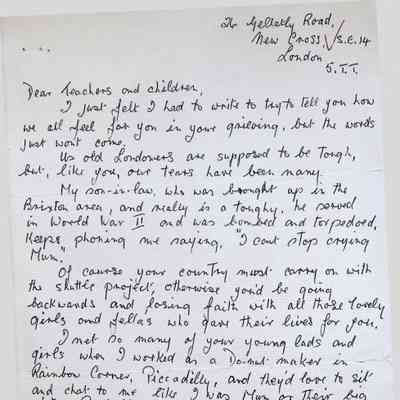 Gellatly Road,
New Cross, S.E.14
London
Dear Teachers and children,
I just felt I had to write to try to tell you how
we all feel for you in your grieving, but the words
just wont come.
Us old Londoners are supposed to be Tough,
but, like you, our tears have been many.
My son-in-law, who was brought up in the
Brixton area, and really is a toughy, he served
in World War II and was bombed and torpedoed,
Keeps phoning me saying, "I cant stop crying
Mum."
Of course your country must carry on with
the shuttle project, otherwise you'd be going
backwards and losing faith with all those lovely
girls and fellas who gave their lives for you.
I met so many of your young lads and
girls when I worked as a Do-nut maker in
Rainbow Corner, Piccadilly, and they'd love to sit
and chat to me like I was Mum or their big